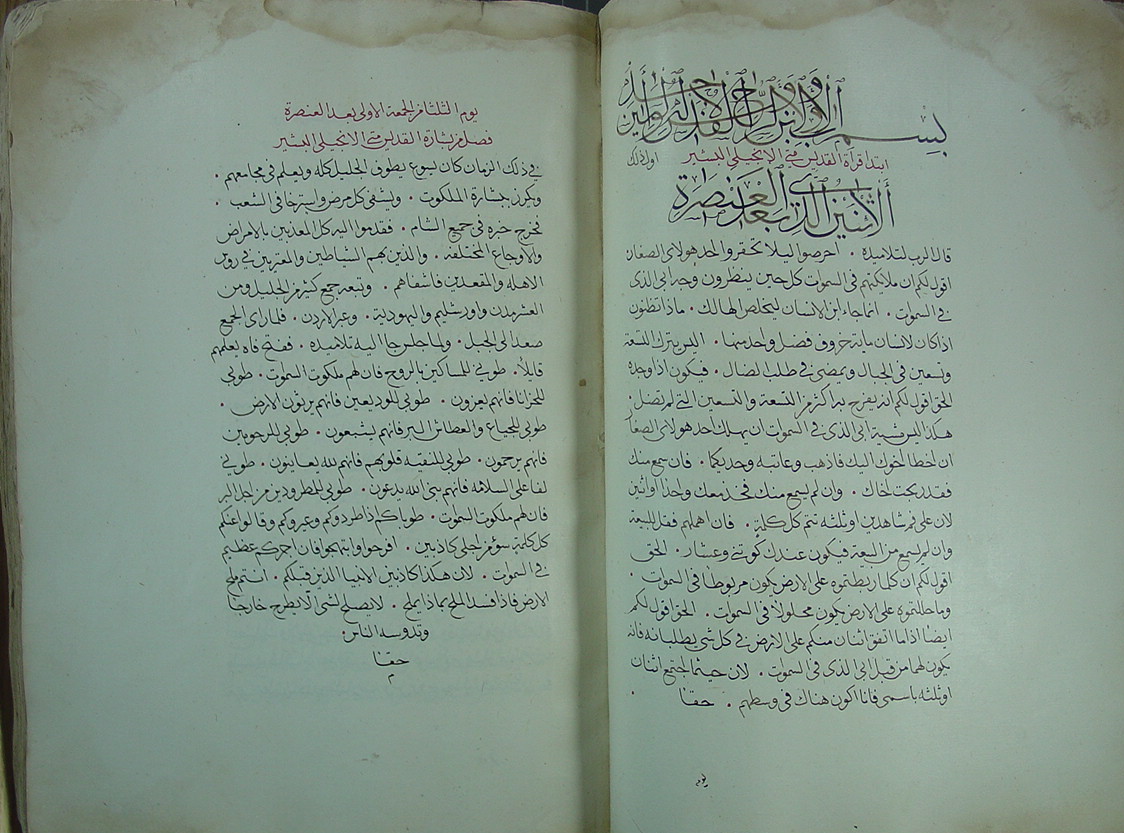 بسم الاب والابن والروح القدس الاه واحد امين
ابتدا قراة القديس متى الانجيلي البشير
اول ذلك
الاثنين الذي بعد العنصرة
قال الرب لتلاميذه . احرصوا ليلا تحقروا احد هولاى الصغار
اقول لكم ان ملايكتهم فى السموات كل حين ينظرون وجه ابى الذى
فى السموات . انما جا ابن الانسان ليخلص الهالك . ماذا تظنون
اذا كان لانسان ماية خروف فضل واحد منها . اليس يترك التسعة
وتسعين فى الجبال ويمضى فى طلب الضال . فيكون اذا وجده
الحق اقول لكم انه يفرح به اكثر من التسعة والتسعين التى لم تضل .
هكذا ليس مشية ابى الذى فى السموات ان يهلك احد هولاى الصغار
ان اخطا اخوك اليك فاذهب وعاتبه وحدكما . فان سمع منك
فقد ربحت اخاك . وان لم يسمع منك فخذ معك واحدا او اثنين
لان على فم شاهدين او ثلثه تتم كل كلمة . فان اهملهم فقل للبيعة
وان لم يسمع من البيعة فيكون عندك كوثنى وعشار . الحق
اقول لكم ان كلما ربطتموه على الارض يكون مربوطا فى السموات .
وما حللتموه على الارض يكون محلولا فى السموات . الحق اقول لكم
ايضا اذا ما اتفق اثنان منكم على الارض فى كل شى يطلبانه فانه
يكون لهما من قبل ابى الذى فى السموات . لان حيثما اجتمع اثنان
او ثلثه باسمى فانا اكون هناك فى وسطهم . حقا .
يوم
يوم الثلثا من الجمعة الاولى بعد العنصرة
فصل من بشارة القديس متى الانجيلى البشير
فى ذلك الزمان كان يسوع يطوف الجليل كله ويعلم فى مجامعهم .
ويكرز ببشارة الملكوت . ويشفى كل مرض واسترخا فى الشعب .
فخرج خبره فى جميع الشام . فقدموا اليه كل المعذبين بالامراض
والاوجاع المختلفه . والذين بهم الشياطين والمعتريين فى روس
الاهله والمقعدين فاشفاهم . وتبعه جمع كثير من الجليل ومن
العشر مدن واورشليم واليهودية . وعبر الاردن . فلما راى الجمع
صعد الى الجبل . ولما جلس جا اليه تلاميذه . ففتح فاه يعلمهم
قايلا . طوبى للمساكين بالروح فان لهم ملكوت السموات . طوبى
للحزانا فانهم يعزون . طوبى للوديعين فانهم يرثون الارض .
طوبى للجياع والعطاش للبر فانهم يشبعون . طوبى للمرحومين
فانهم يرحمون . طوبى للنقيه قلوبهم فانهم لله يعاينون . طوبى
لفاعلى السلامه فانهم بنى الله يدعون . طوبى للمطرودين من اجل البر
فان لهم ملكوت السموات . طوباكم اذا طردوكم وعيروكم وقالوا عنكم
كل كلمة سؤ من اجلى كاذبين . افرحوا وابتهجوا فان اجركم عظيم
فى السموات . لان هكذا الانبيا الذين قبلكم . انتم ملح
الارض فاذا فسد الملح بماذا يملح . لا يصلح لشى الا يطرح خارجا
وتدوسه الناس.
حقا